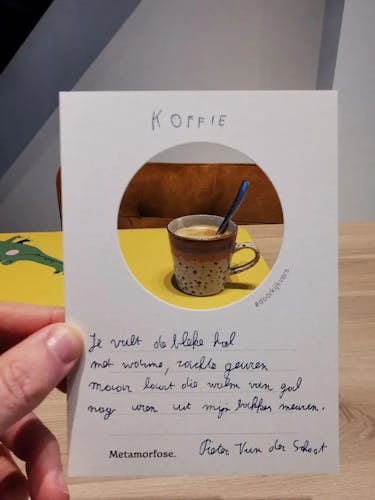 KOFFIE
#doorkijkvers
Je vult de bleke hal
met warme, zachte geuren
maar laat die walm van gal
nog uren uit mijn bakkes meuren.
Metamorfose. Pieter Van der Schoot